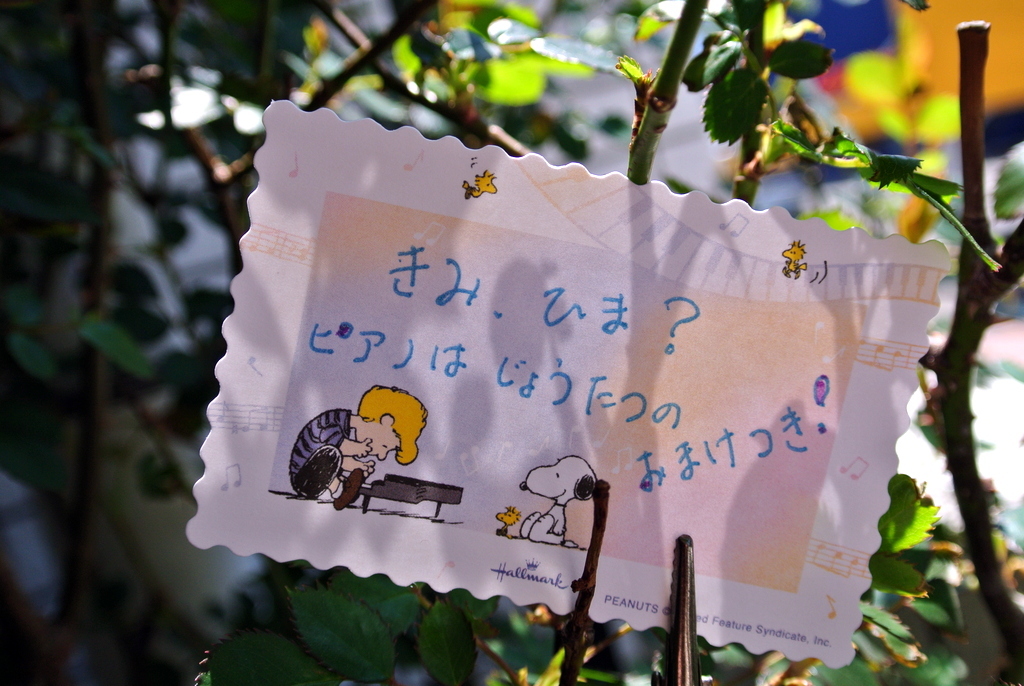 きみ、ひま?
ピアノはじょうたつの
おまけつき!
Hallmark
PEANUTS © ed Feature Syndicate, Inc.